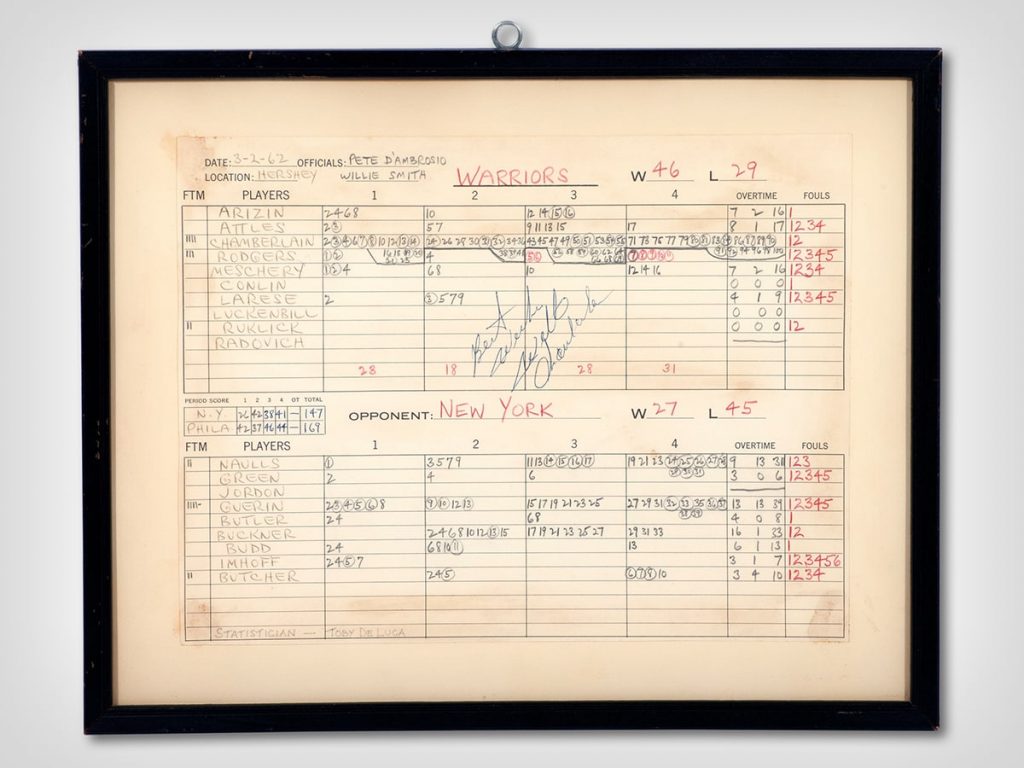 DATE: 3-2-62 OFFICIALS: PETE D'AMBROSIO
LOCATION: HERSHEY WILLIE SMITH WARRIORS W 46 L 29
FTM PLAYERS 1 2 3 4 OVERTIME FOULS
ARIZIN 2468 10 12 14 15 16 7 2 16 1
ATTLES 23 57 9 11 13 15 17 8 1 17 1234
CHAMBERLAIN 12
RODGERS 12 4 12345
MESCHERY 124 68 10 12 14 16 7 2 16 1234
CONLIN 0 0 0 1
LARESE 2 3579 4 1 9 12345
LUCKENBILL 0 0 0
RUKLICK 0 0 0 12
RADOVICH
Best Wishes Wilt Chamberlain
23 18 28 31
PERIOD SCORE 1 2 3 4 OT TOTAL
N.Y. 26 42 38 41 — 147
PHILA 42 37 46 44 — 169
OPPONENT: NEW YORK W 27 L 45
FTM PLAYERS 1 2 3 4 OVERTIME FOULS
NAULLS 1 3579 11 13 14 15 16 17 9 13 31 123
GREEN 2 4 6 3 0 6 12345
JORDON
GUERIN 234568 9 10 12 13 15 17 19 21 23 25 13 13 39 12345
BUTLER 24 68 4 0 8 1
BUCKNER 2468 10 12 13 15 17 19 21 23 25 27 29 31 33 16 1 33 12
BUDD 24 68 10 11 13 6 1 13 1
IMHOFF 2457 3 1 7 123456
BUTCHER 245 6789 10 3 4 10 1234
STATISTICIAN — TOBY DE LUCA